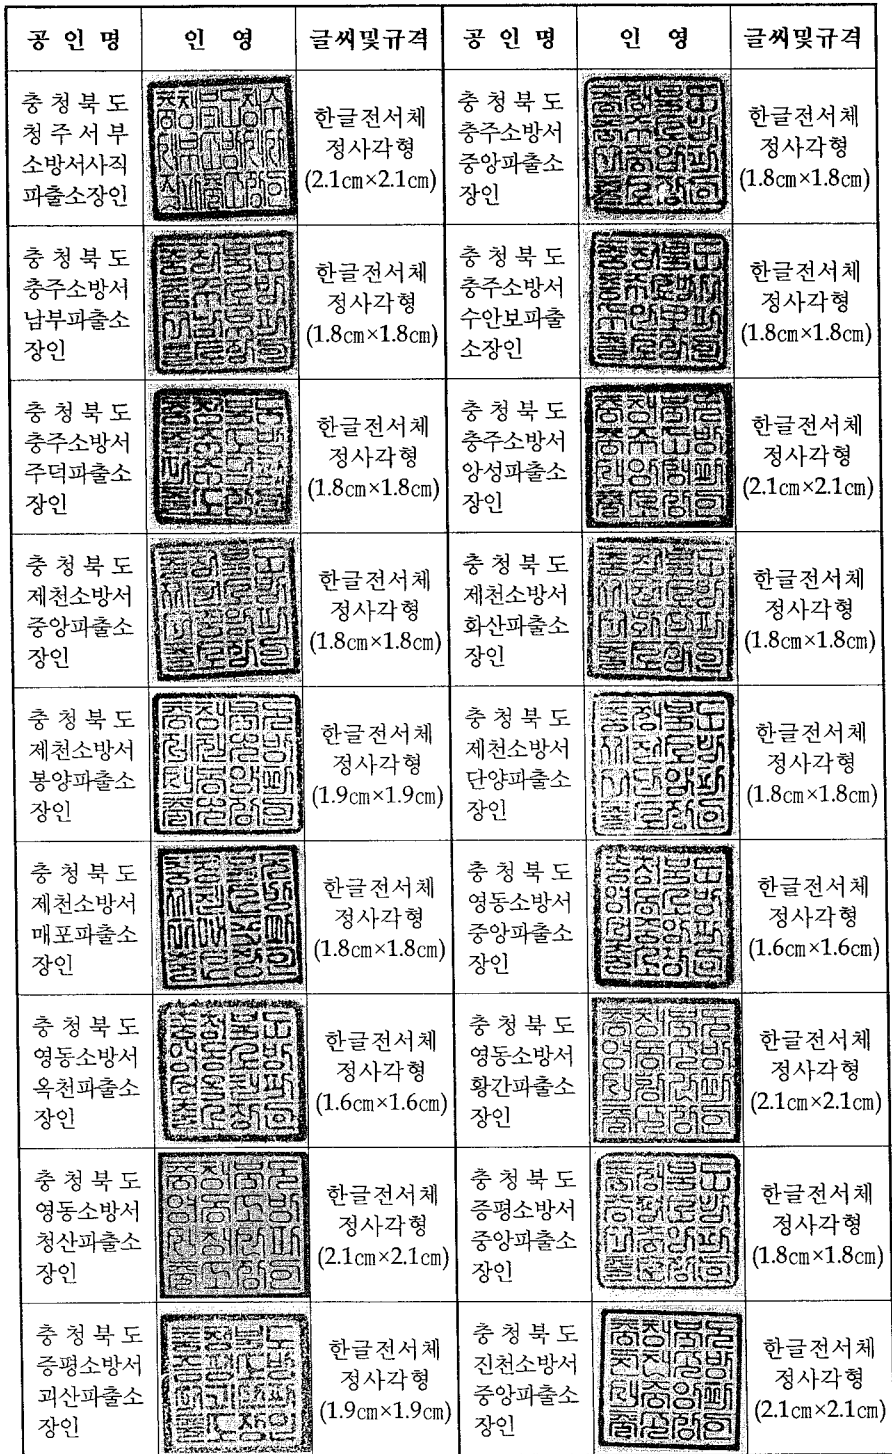 공 인 명 인 영 글씨및규격 공 인 명 인 영 글씨및규격
충 청 북 도
청 주 서 부
소방서사직
파출소장인
한글전서체
정사각형
(2.1cm×2.1cm)
충 청 북 도
충주소방서
중앙파출소
장인
한글전서체
정사각형
(1.8cm×1.8cm)
충 청 북 도
충주소방서
남부파출소
장인
한글전서체
정사각형
(1.8cm×1.8cm)
충 청 북 도
충주소방서
수안보파출
소장인
한글전서체
정사각형
(1.8cm×1.8cm)
충 청 북 도
충주소방서
주덕파출소
장인
한글전서체
정사각형
(1.8cm×1.8cm)
충 청 북 도
충주소방서
앙성파출소
장인
한글전서체
정사각형
(2.1cm×2.1cm)
충 청 북 도
제천소방서
중앙파출소
장인
한글전서체
정사각형
(1.8cm×1.8cm)
충 청 북 도
제천소방서
화산파출소
장인
한글전서체
정사각형
(1.8cm×1.8cm)
충 청 북 도
제천소방서
봉양파출소
장인
한글전서체
정사각형
(1.9cm×1.9cm)
충 청 북 도
제천소방서
단양파출소
장인
한글전서체
정사각형
(1.8cm×1.8cm)
충 청 북 도
제천소방서
매포파출소
장인
한글전서체
정사각형
(1.8cm×1.8cm)
충 청 북 도
영동소방서
중앙파출소
장인
한글전서체
정사각형
(1.6cm×1.6cm)
충 청 북 도
영동소방서
옥천파출소
장인
한글전서체
정사각형
(1.6cm×1.6cm)
충 청 북 도
영동소방서
황간파출소
장인
한글전서체
정사각형
(2.1cm×2.1cm)
충 청 북 도
영동소방서
청산파출소
장인
한글전서체
정사각형
(2.1cm×2.1cm)
충 청 북 도
증평소방서
중앙파출소
장인
한글전서체
정사각형
(1.8cm×1.8cm)
충 청 북 도
증평소방서
괴산파출소
장인
한글전서체
정사각형
(1.9cm×1.9cm)
충 청 북 도
진천소방서
중앙파출소
장인
한글전서체
정사각형
(2.1cm×2.1cm)